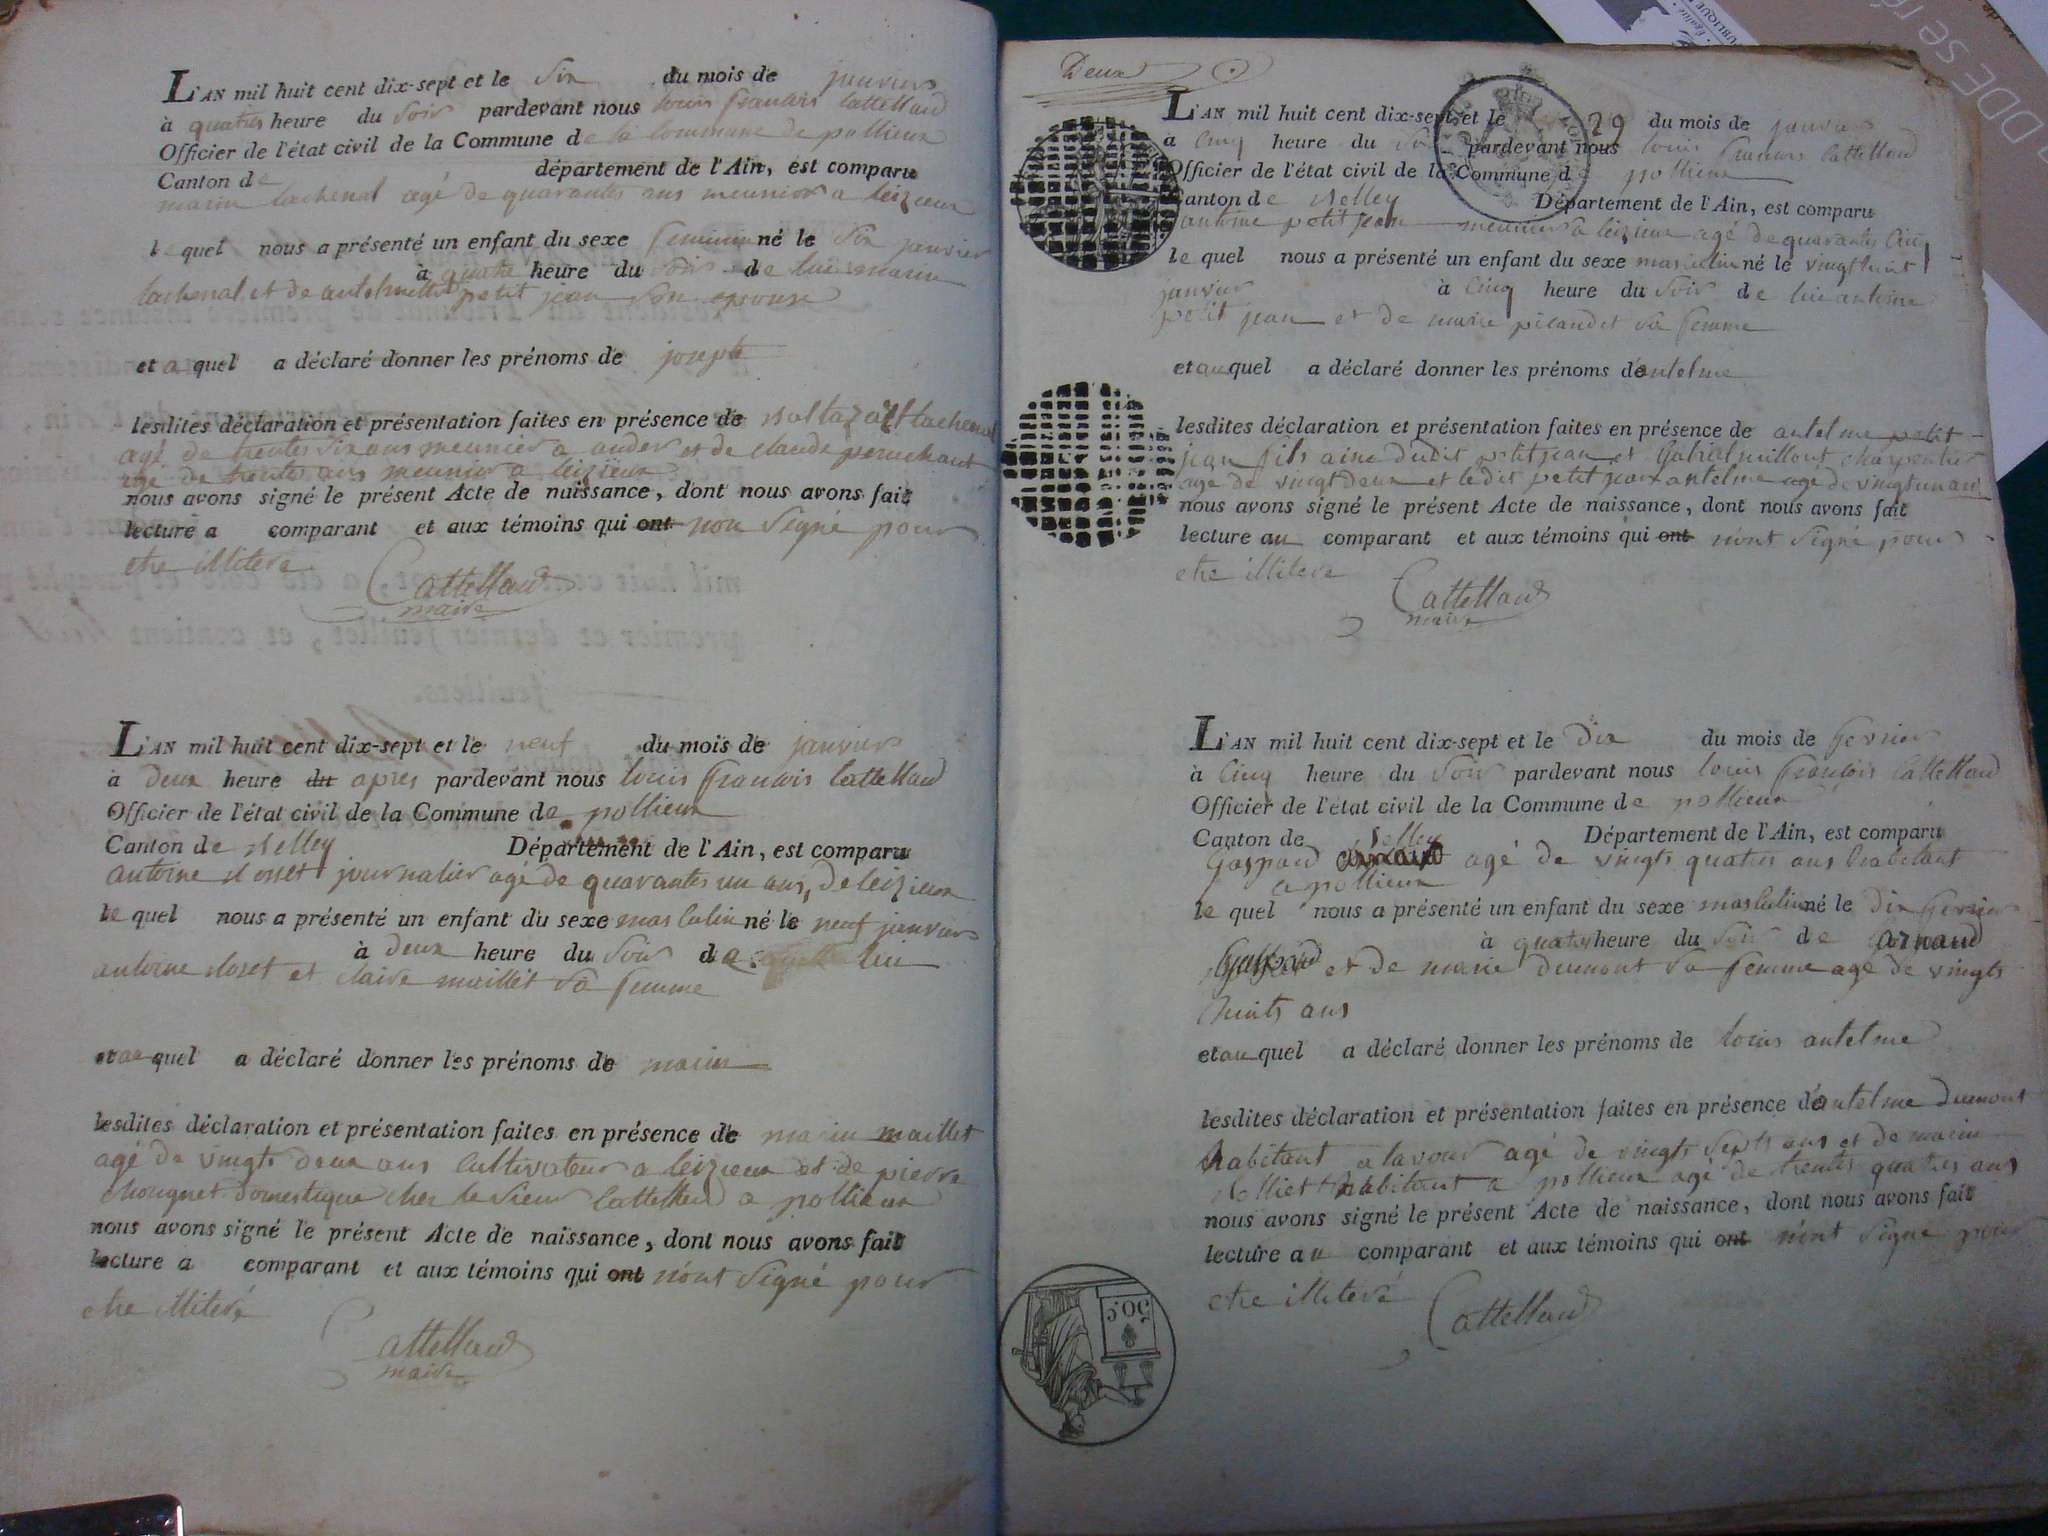 L'AN mil huit cent dix-sept et le Six du mois de janvier
à quatres heure du Soir pardevant nous louis francois Cattelland
Officier de l'état civil de la Commune de la Commune de pollieux
Canton de département de l'Ain, est comparu
marin lachenal agé de quarantes ans meunier a leizieux
le quel nous a présenté un enfant du sexe feminin né le Six janvier
à quatre heure du Soir de lui marin
lachenal et de antelmette petit jean Son epouse
et a quel a déclaré donner les prénoms de josephte
lesdites déclaration et présentation faites en présence de Baltazart lachenal
agé de trentes Six ans meunier a andert et de claude
agé de trentes ans meunier a leizieux
nous avons signé le présent Acte de naissance, dont nous avons fait
lecture a comparant et aux témoins qui ont non Signé pour
etre illiteré
Cattelland
maire
L'AN mil huit cent dix-sept et le neuf du mois de janvier
à deux heure du apres pardevant nous louis francois Cattelland
Officier de l'état civil de la Commune de pollieux
Canton de Belley Département de l'Ain, est comparu
antoine Bosset journalier agé de quarantes un ans, de leizieux
le quel nous a présenté un enfant du sexe masculin né le neuf janvier
à deux heure du Soir de lui
antoine Boset et claire maillet Sa femme
et au quel a déclaré donner les prénoms de marin
lesdites déclaration et présentation faites en présence de marin maillet
agé de vingts deux ans Cultivateur a leizieux et de pierre
domestique chez le Sieur Cattelland a pollieux
nous avons signé le présent Acte de naissance, dont nous avons fait
lecture a comparant et aux témoins qui ont n'ont Signé pour
etre illiteré
Cattelland
maire
Deux
L'AN mil huit cent dix-sept et le 29 du mois de janvier
à Cinq heure du Soir pardevant nous louis francois Cattelland
Officier de l'état civil de la Commune d pollieux
Canton de Belley Département de l'Ain, est comparu
antoine petit jean meunier a leizieux agé de quarantes Cinq
le quel nous a présenté un enfant du sexe masculin né le vingt huit
janvier à Cinq heure du Soir de lui antoine
petit jean et de marie Sa femme
et au quel a déclaré donner les prénoms d'antelme
lesdites déclaration et présentation faites en présence de antelme petit
jean fils ainé dudit petit jean et Gabriel millout charpentier
agé de vingt deux et ledit petit jean antelme agé de vingt un an
nous avons signé le présent Acte de naissance, dont nous avons fait
lecture au comparant et aux témoins qui ont n'ont Signé pour
etre illitere
Cattelland
maire
L'AN mil huit cent dix-sept et le Dix du mois de fevrier
à Cinq heure du Soir pardevant nous louis francois Cattelland
Officier de l'état civil de la Commune de pollieux
Canton de Belley Département de l'Ain, est comparu
Gaspard agé de vingts quatres ans habitant
a pollieux
le quel nous a présenté un enfant du sexe masculin né le Dix fevrier
à quatres heure du Soir de arnaud
Gaspard et de marie dumont Sa femme agé de vingts
huits ans
et au quel a déclaré donner les prénoms de louis antelme
lesdites déclaration et présentation faites en présence d'antelme dumont
habitant a lavour agé de vingts Septs ans et de marin
Rolliet habitant a pollieux agé de trentes quatres ans
nous avons signé le présent Acte de naissance, dont nous avons fait
lecture au comparant et aux témoins qui ont n'ont Signé pour
etre illiteré
Cattelland
50.C